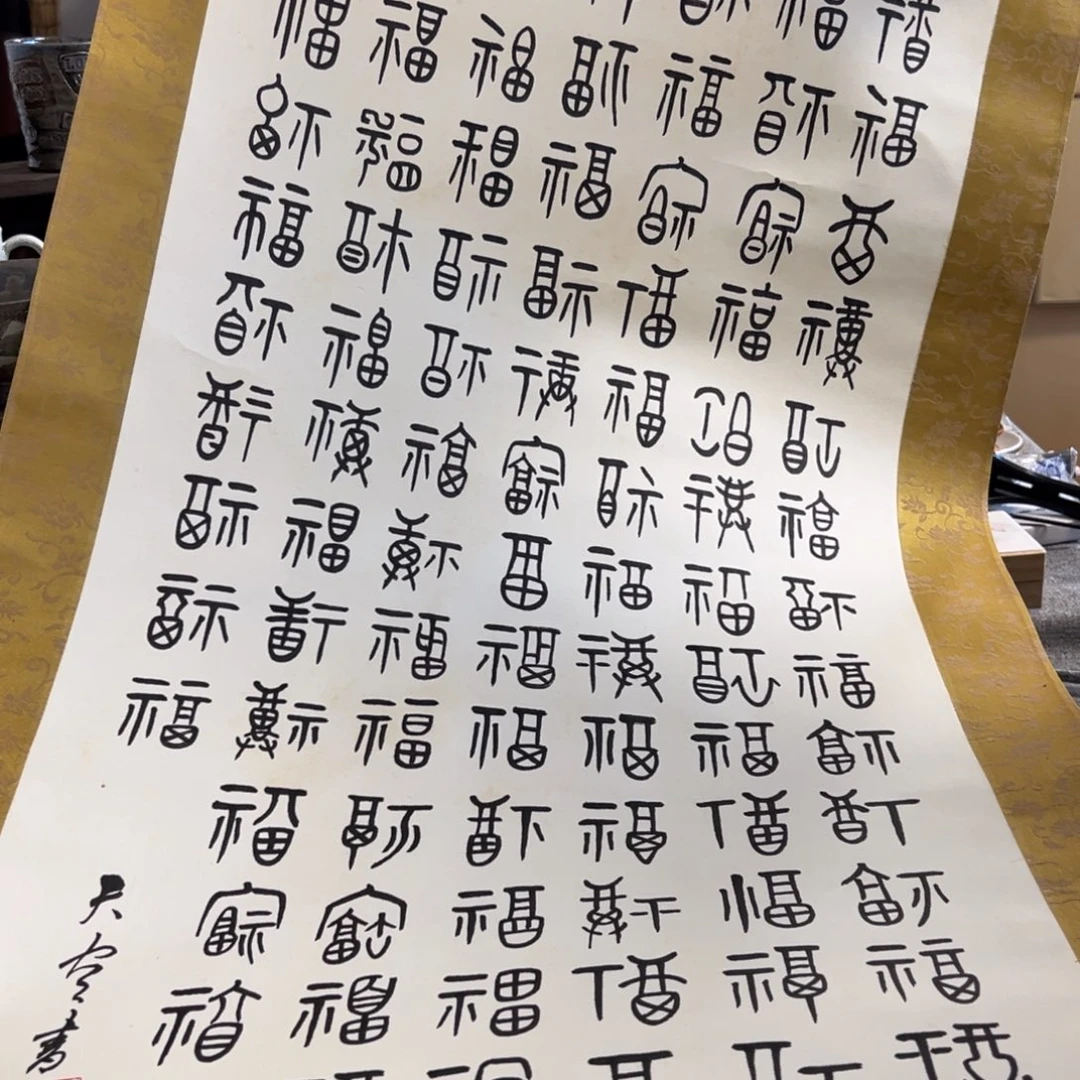 福福福福福福福福福福福福
福福福福福福福福福福福福
福福福福福福福福福福福
福福福福福福福福福福福
福福福福福福福福福福福
福福福福福福福福福福福
福福福福福福福福
天 書